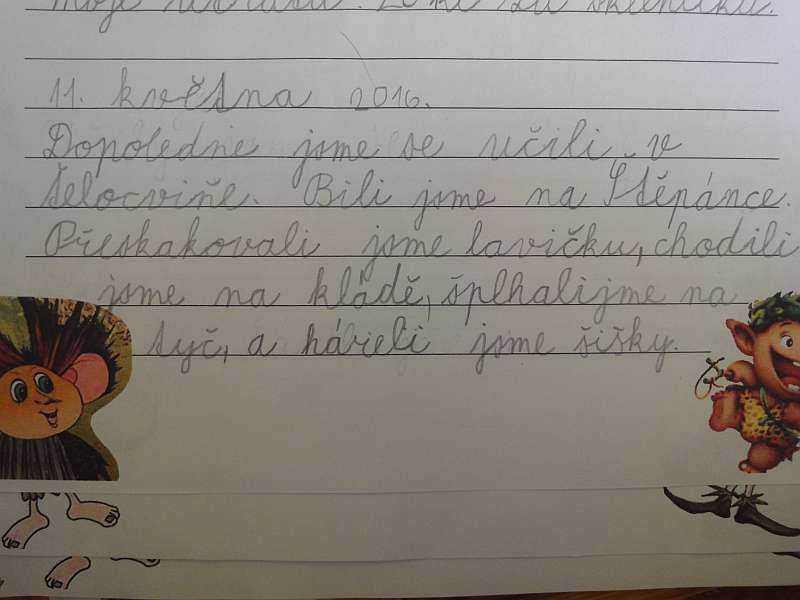 11. května 2016.
Dopoledne jsme se učili v
Tělocviňe. Bili jsme na Štěpánce.
Přeskakovali jsme lavičku, chodili
jsme na kládě, šplhalijme na
tyč, a házeli jsme šišky.